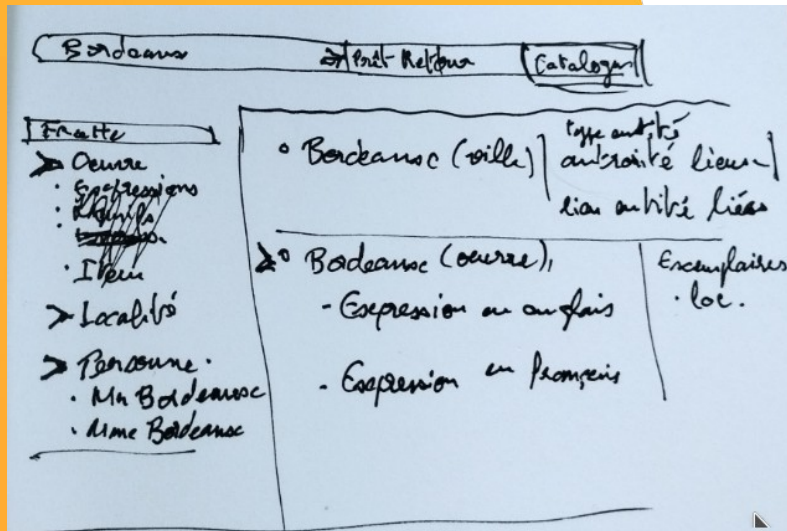 Bordeaux
Prêt Retour
Catalogue
Facette
Oeuvre
· Expressions
· Manifs
· Item
Localité
Personne.
· Mr Bordeaux
· Mme Bordeaux
Bordeaux (ville)
type entité
autorité lieu
lien entité liées
Bordeaux (oeuvre)
- Expression en anglais
- Expression en français
Exemplaires
· loc.